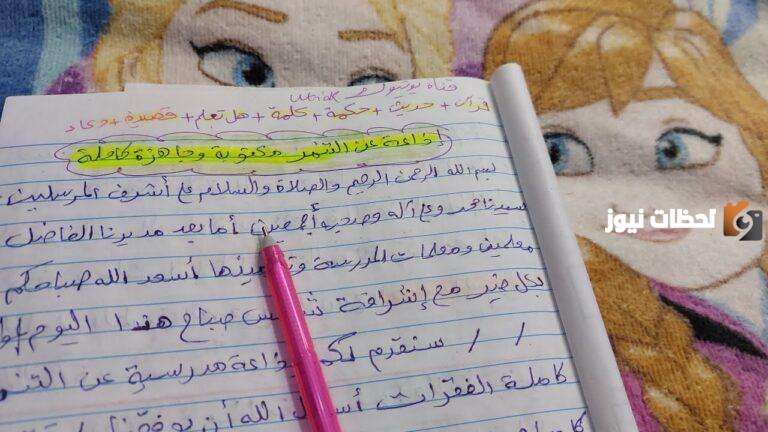 قناة يوتيوب
قرآن + حديث + حكمة + كلمة + هل تعلم + قصيدة + دعاء
إذاعة عن التنمر مكتوبة وجاهزة كاملة
بسم الله الرحمن الرحيم والصلاة والسلام على أشرف المرسلين
سيدنا محمد وعلى آله وصحبه أجمعين أما بعد مديرنا الفاضل
معلمين ومعلمات المدرسة أسعد الله صباحكم
بكل خير مع إشراقة صباح هذا اليوم
/ / سنقدم لكم إذاعة مدرسية عن
كاملة الفقرات الله أن يوفقنا
لحظات نيوز